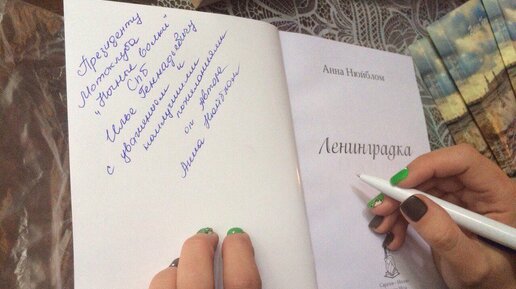 Президенту
Мотоклуба
"Ночные волки"
СПб
Илье Геннадьевичу
с уважением и
наилучшими
пожеланиями
от автора
Анна Нюйблом
Анна Нюйблом
Ленинградка